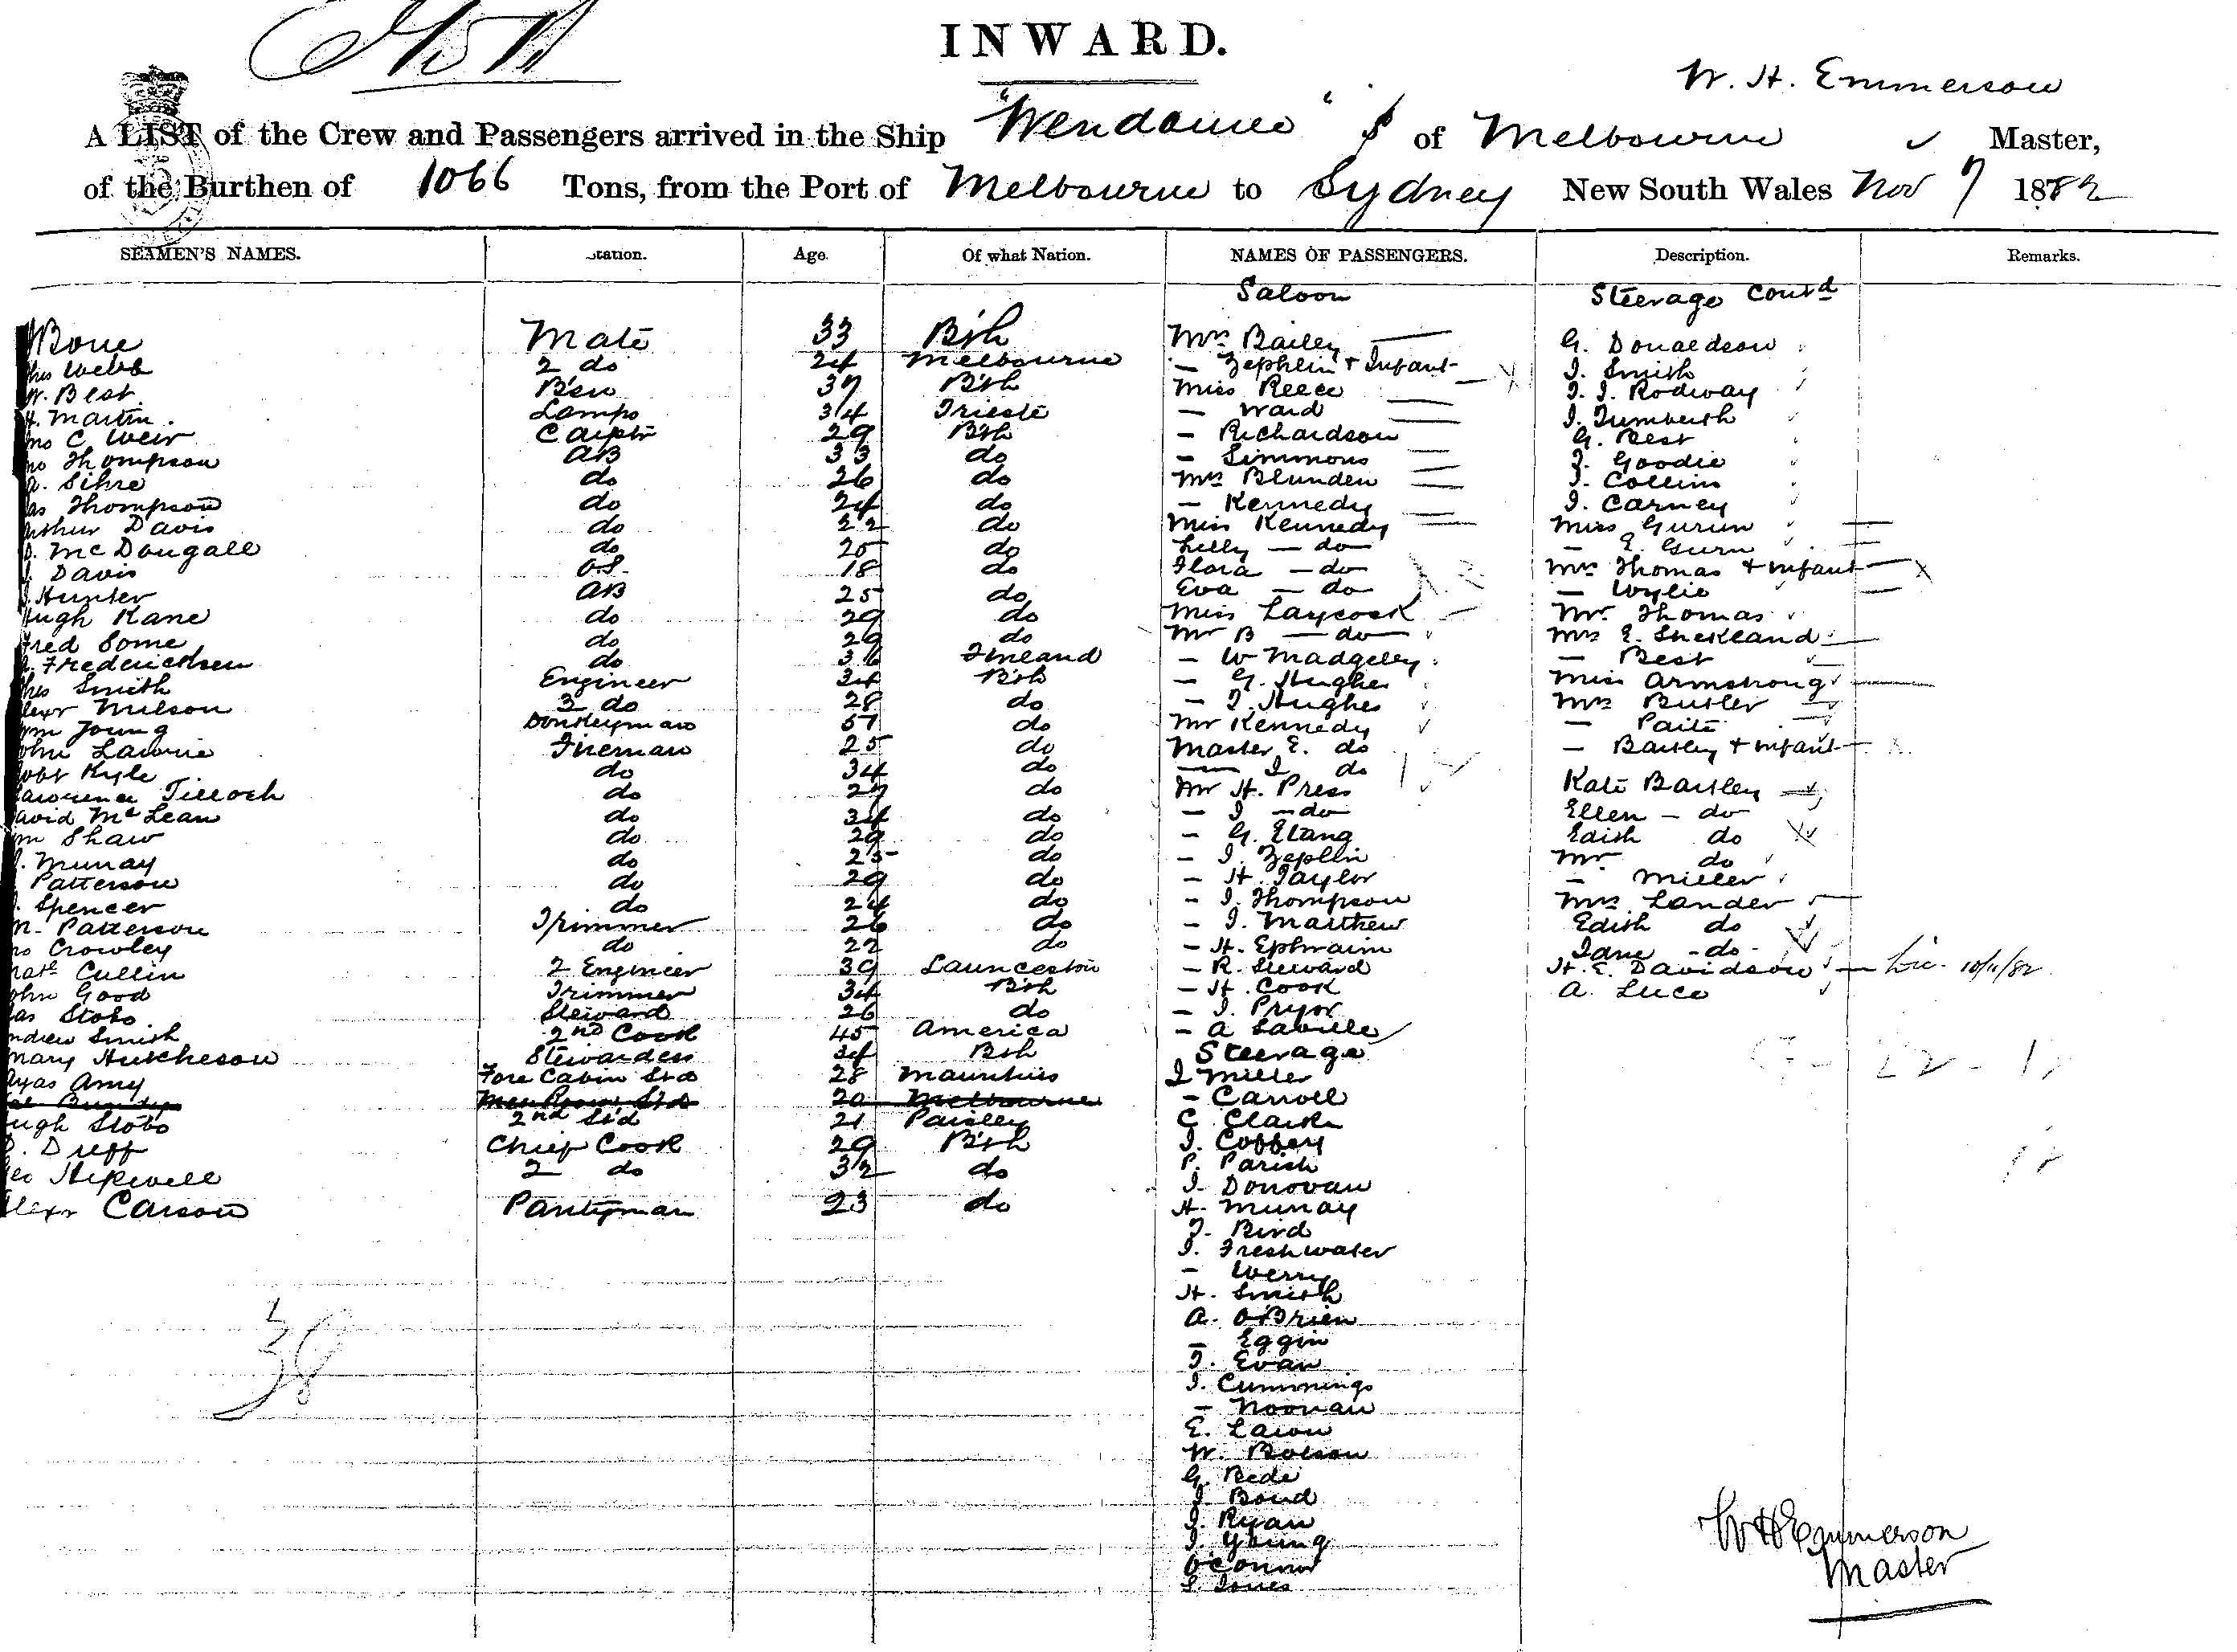 INWARD.
W. H. Emmerson
A LIST of the Crew and Passengers arrived in the Ship "Wendouree" S of Melbourne Master,
of the Burthen of 1066 Tons, from the Port of Melbourne to Sydney New South Wales Nov 7 1882
SEAMEN'S NAMES. tation. Age. Of what Nation. NAMES OF PASSENGERS. Description. Remarks.
Saloon Steerage Contd
Bone Mate 33 Bsh Mrs Bailey G. Donaldson
Webb 2 do 24 Melbourne — Zephlin + Infant J. Smith
W. Best B'sn 37 Bsh Miss Reece J. J. Rodway
H. Martin. Lamps 34 Trieste — Ward
C Weir Carptr 29 Bsh — Richardson G. Best
Thompson AB 33 do — Simmons J. Goodie
A. Sihre do 26 do Mrs Blunden J. Collins
as Thompson do 24 do — Kennedy J. Carney
Arthur Davis do 22 do Miss Kennedy Miss Gurun
D. McDougall do 25 do Lilly — do — E. Gurn
J. Davis O.S. 18 do Flora — do Mrs Thomas + Infant
J. Hunter AB 25 do Eva — do — Wylie
Hugh Kane do 29 do Miss Laycock Mr. Thomas
Fred Some do 29 do Mr B — do — Mrs E. Strickland
Fredericksen do 36 Finland — W Madgeley — Best
Smith Engineer 34 Bsh — G. Hughes Miss Armstrong
lexr Milson 3 do 28 do — J. Hughes Mrs Butler
Wm Young Donkeyman 57 do Mr Kennedy — Paite
John Lawrie Fireman 25 do Master E. do — Bartley + Infant
Robt Kyle do 34 do — J do
Lawrence Tilloch do 27 do Mr H. Press Kate Bartley
David McLean do 34 do — J — do Ellen — do
Wm Shaw do 29 do — G. Etang Edith do
J. Murray do 25 do — J. Zeplin Mr do
Patterson do 29 do — H. Taylor — Miller
J. Spencer do 24 do — J. Thompson Mrs Lander
M. Patterson Trimmer 26 do — J. Matthew Edith do
Crowley do 22 do — H. Ephraim Jane — do
Cullin 2 Engineer 39 Launceston — R. Steward H. E. Davidson — 10/11/82
John Good Trimmer 34 Bsh — H. Cook A. Luce
as Stobo Steward 26 do — J. Pryor
Andrew Smith 2nd Cook 45 America — A Saville
Mary Hutcheson Stewardess 34 Bsh Steerage
Amy Fore Cabin Std 28 Mauritius J Miller
Mess Room Std 20 Melbourne — Carroll
Hugh Stobo 2nd Std 21 Paisley C Clark
D. Duff Chief Cook 29 Bsh J. Coffey
Geo Hipwell 2 do 32 do P. Parish
J. Donovan
Alexr Carson Pantryman 23 do H. Murray
J. Bird
J. Freshwater
— Werry
H. Smith
A. O'Brien
— Eggin
J. Evan
38
J. Cummings
— Noonan
E. Laion
W. Bolson
G. Bede
J. Bond
J. Ryan
J. Young
O'Connor
S. Jones
W H Emmerson
Master